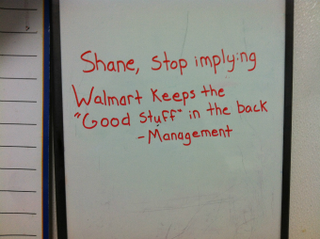 Shane, stop implying
Walmart Keeps the
"Good stuff" in the back
-Management